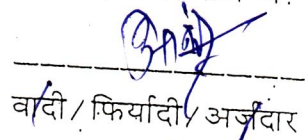 वादी / फिर्यादी / अर्जदार